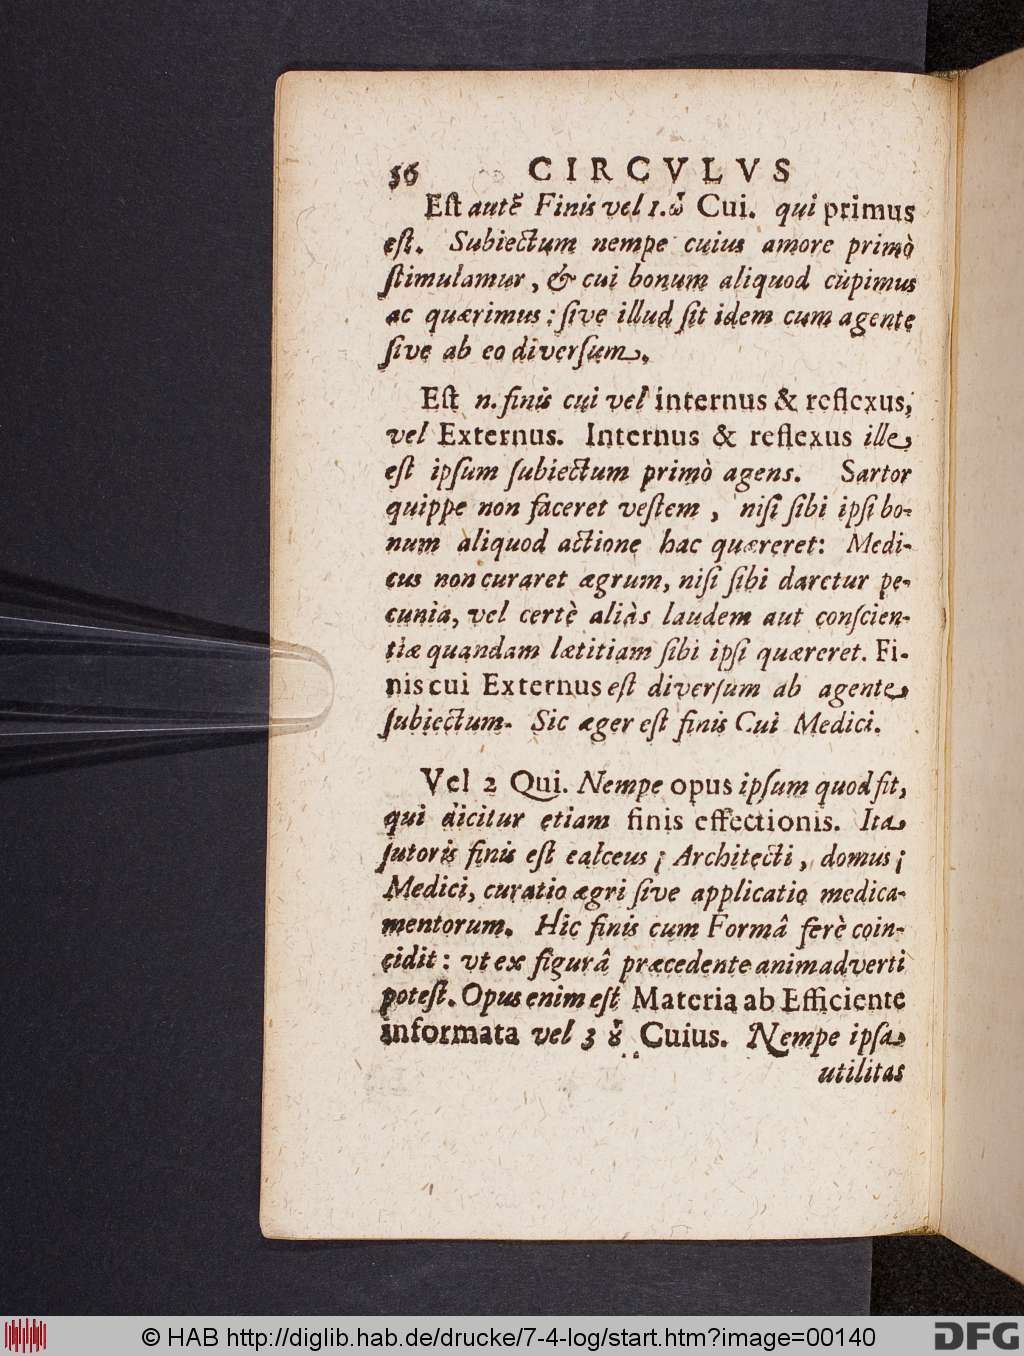 56 CIRCVLVS
Eſt autē Finis vel 1. ᾧ Cui. qui primus
eſt. Subiectum nempe cuius amore primò
ſtimulamur, & cui bonum aliquod cupimus
ac quærimus: ſive illud ſit idem cum agente
ſive ab eo diverſum.
Eſt n. finis cui vel internus & reflexus,
vel Externus. Internus & reflexus ille
eſt ipſum ſubiectum primò agens. Sartor
quippe non faceret veſtem, niſi ſibi ipſi bo-
num aliquod actione hac quæreret: Medi-
cus non curaret ægrum, niſi ſibi daretur pe-
cunia, vel certè aliàs laudem aut conſcien-
tiæ quandam lætitiam ſibi ipſi quæreret. Fi-
nis cui Externus eſt diverſum ab agente
ſubiectum. Sic æger eſt finis Cui Medici.
Vel 2 Qui. Nempe opus ipſum quod fit,
qui dicitur etiam finis effectionis. Ita
ſutoris finis eſt calceus; Architecti, domus;
Medici, curatio ægri ſive applicatio medica-
mentorum. Hic finis cum Formâ ferè coin-
cidit: vt ex figurâ præcedente animadverti
poteſt. Opus enim eſt Materia ab Efficiente
informata vel 3 Cuius. Nempe ipſa
utilitas
© HAB http://diglib.hab.de/drucke/7-4-log/start.htm?image=00140
DFG